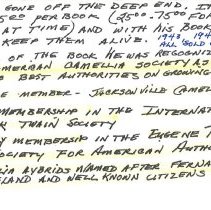 GONE OFF THE DEEP END. I
5.00 PER BOOK (25.00 - 75.00 FOR
AT TIME) AND WITH HIS BOOK
KEEP THEM ALIVE. 1948, 194
ALL SOLD
OF THE BOOK HE WAS RECOGNIZ
AMERICAN CAMELLIA SOCIETY AS
BEST AUTHORITIES ON GROWING
E MEMBER - JACKSONVILLE CAMEL
MEMBERSHIP IN THE INTERNAT
K TWAIN SOCIETY
Y MEMBERSHIP IN THE EUGENE
OCIETY FOR AMERICAN AUTH
IA HYBRIDS NAMED AFTER FERNA
ELAND AND WELL KNOWN CITIZENS